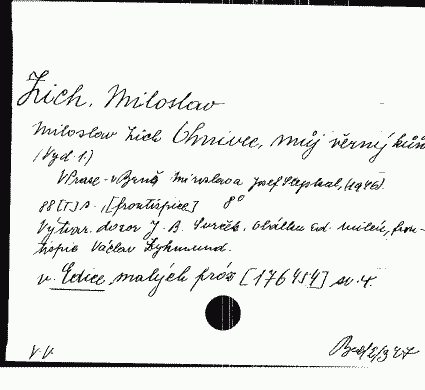 Zich, Miloslav
Miloslav Zich Ohnivec, můj věrný kůň
(Vyd. 1.)
V Praze - v Brně Miroslav a Josef Stejskal, (1946).
88 [I] s., [frontispice] 8°
Výtvar. dozor J. B. Svrček. Obálku od. fron-
tispis Václav Zykmund.
v. Edice malých próz [176454] sv. 4.
V.V.